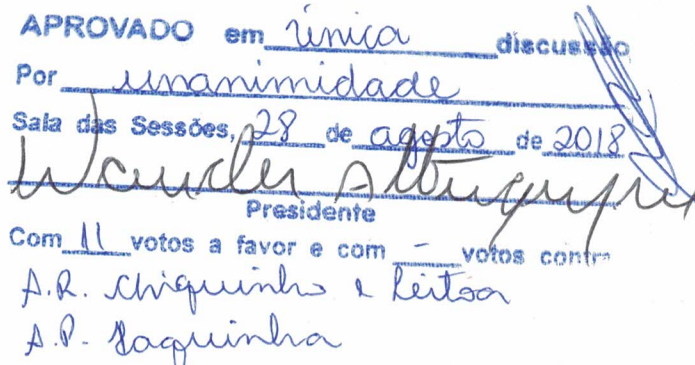 APROVADO em única discussão
Por unanimidade
Sala das Sessões, 28 de agosto de 2018
Wander Albuquerque
Presidente
Com 11 votos a favor e com - votos contra
A.R. Chiquinho e Leitoa
A.P.